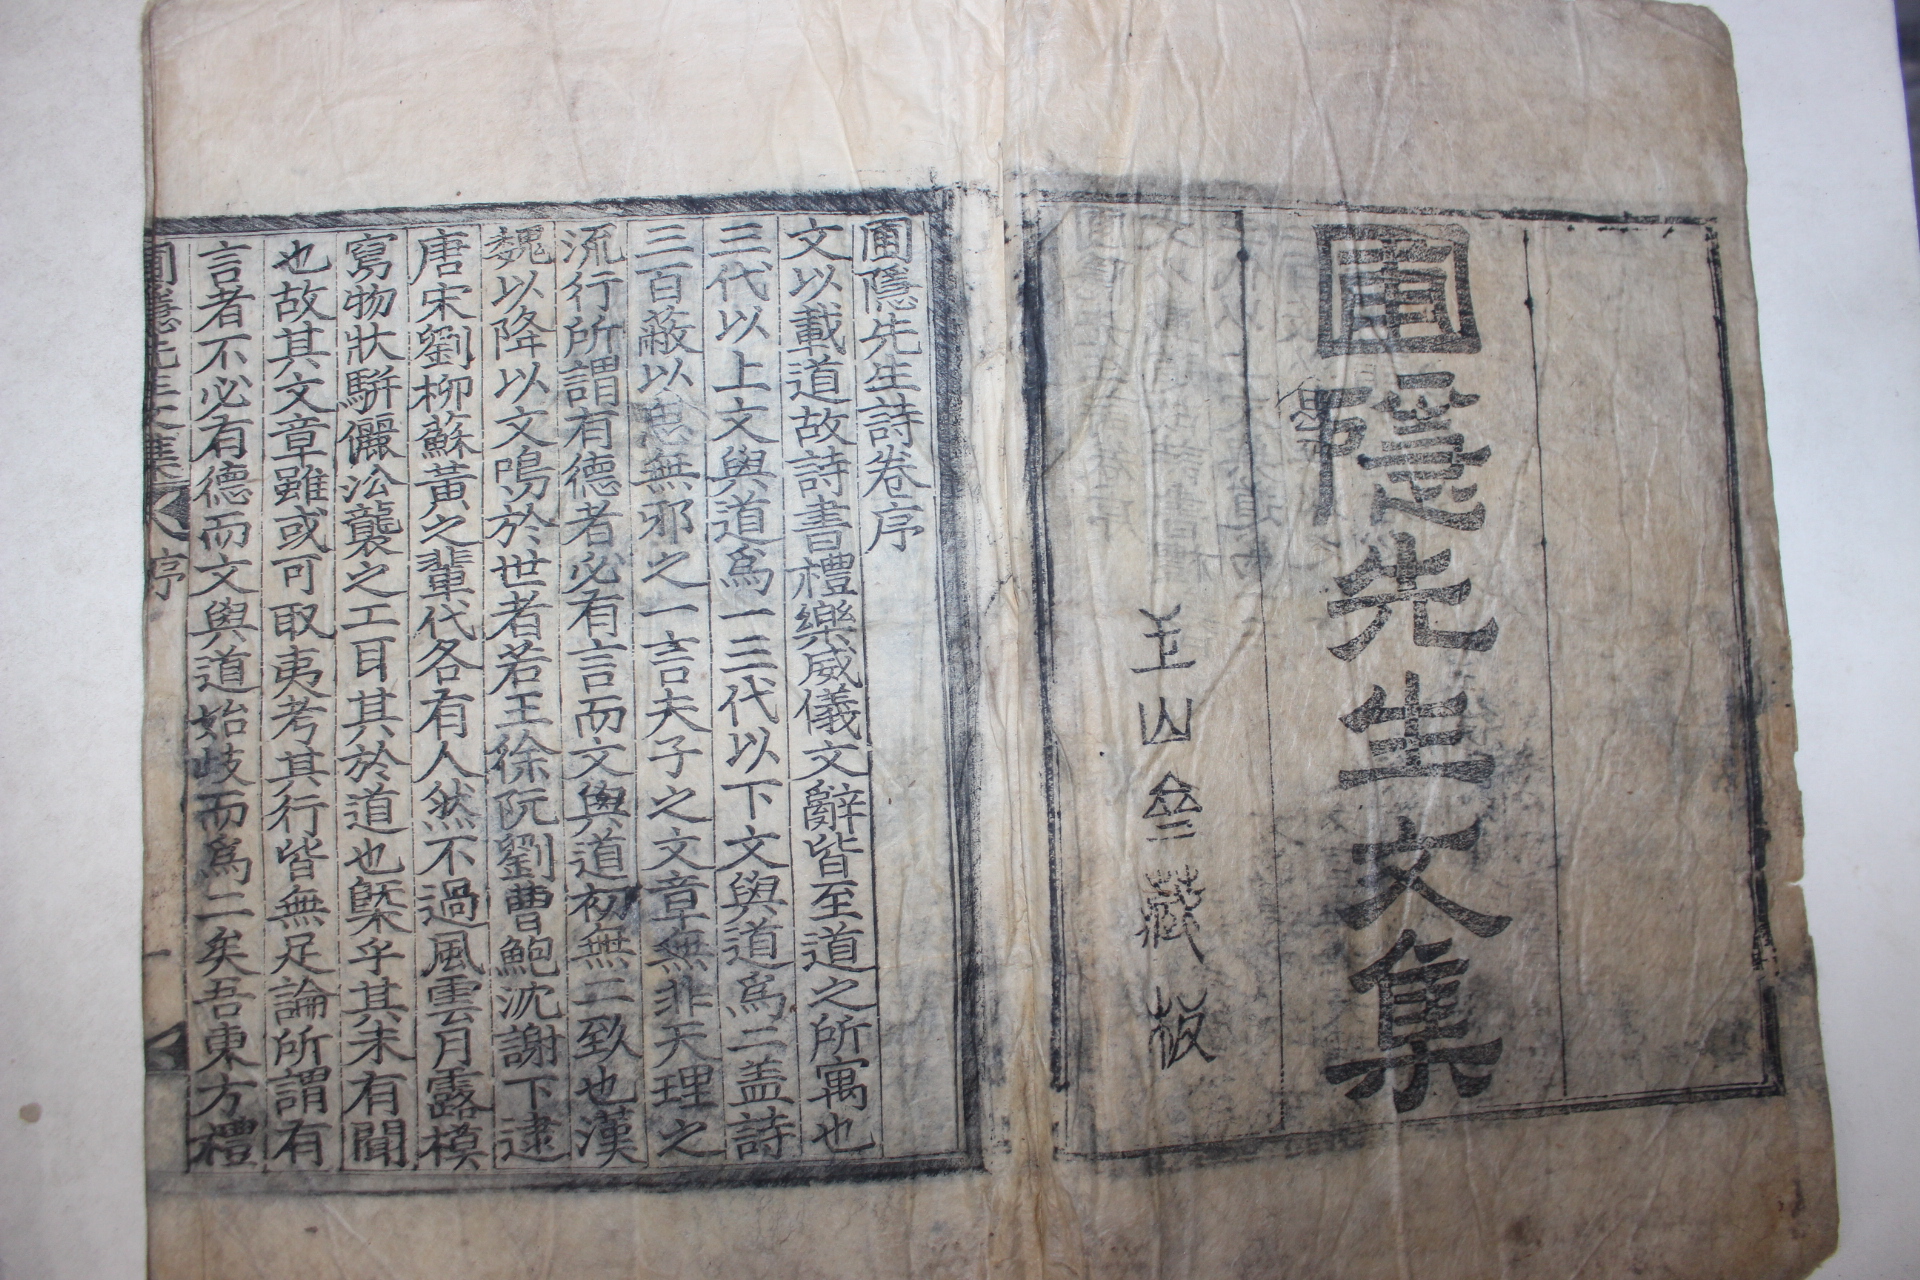 圃隱先生文集
玉山仝藏板
圃隱先生詩卷序
文以載道故詩書禮樂威儀文辭皆至道之所寓也
三代以上文與道爲一三代以下文與道爲二盖詩
三百蔽以思無邪之一言夫子之文章無非天理之
流行所謂有德者必有言而文與道初無二致也漢
魏以降以文鳴於世者若王徐阮劉曹鮑沈謝下逮
唐宋劉柳蘇黃之輩代各有人然不過風雲月露模
寫物狀騈儷㳂襲之工耳其於道也槩乎其未有聞
也故其文章雖或可取夷考其行皆無足論所謂有
言者不必有德而文與道始歧而爲二矣吾東方禮
圃隱先生文集 序 一